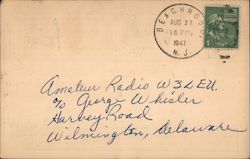 BEACHWOOD
AUG 27
16 PM
1947
N.J.
1
Amateur Radio W3LEU
% George Whisler
Harvey Road
Wilmington, Delaware